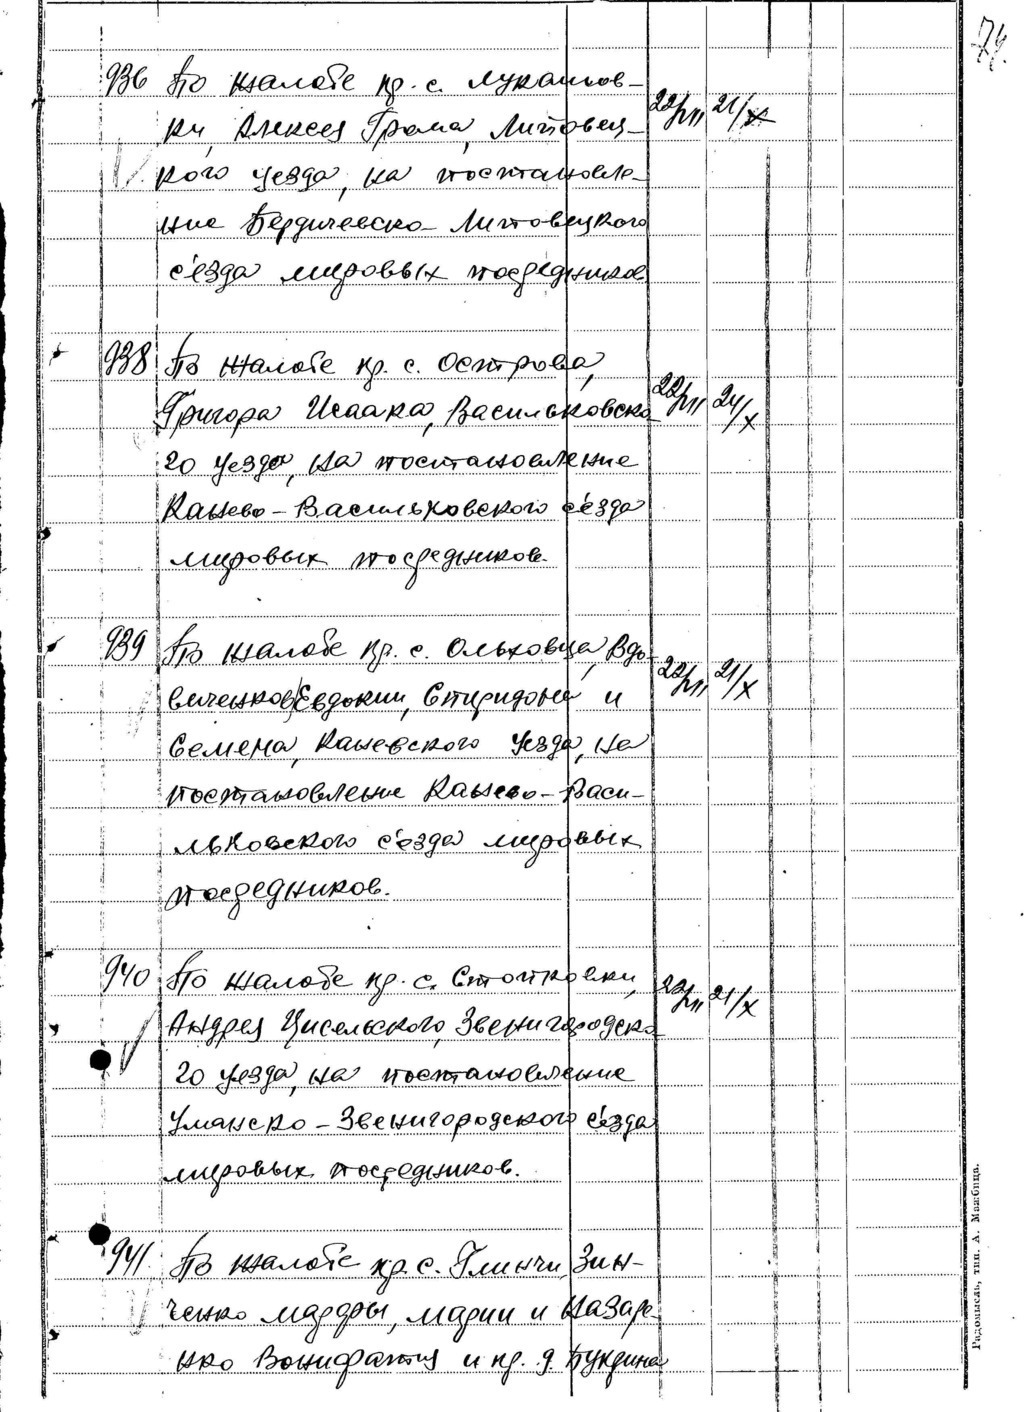 74.
936 По жалобе кр. с. Лукашов-
ки, Алексея Грома, Липовец-
кого уезда, на постановле-
ние Бердичевско-Липовецкого
с'езда мировых посредников
22/VII 21/X
938 По жалобе кр. с. Острова,
Григора Исаака, Васильковско
го уезда, на постановление
Канево-Васильковского с'езда
мировых посредников.
22/VII 24/X
939 По жалобе кр. с. Ольховца, Вдо-
виченков Евдокии, Спиридона и
Семена, Каневского уезда, на
постановление Канево-Васи-
льковского с'езда мировых
посредников.
22/VII 21/X
940 По жалобе кр. с. Стопковки,
Андрея Кисельского, Звенигородско
го уезда, на постановление
Уманско-Звенигородского с'езда
мировых посредников.
22/VII 21/X
941. По жалобе кр. с. Глинчи, Зин-
ченко Мадры, Марии и Назаре-
нко Вонифатия и кр. д. Букдина
Радомысль, тип. А. Мажбица.